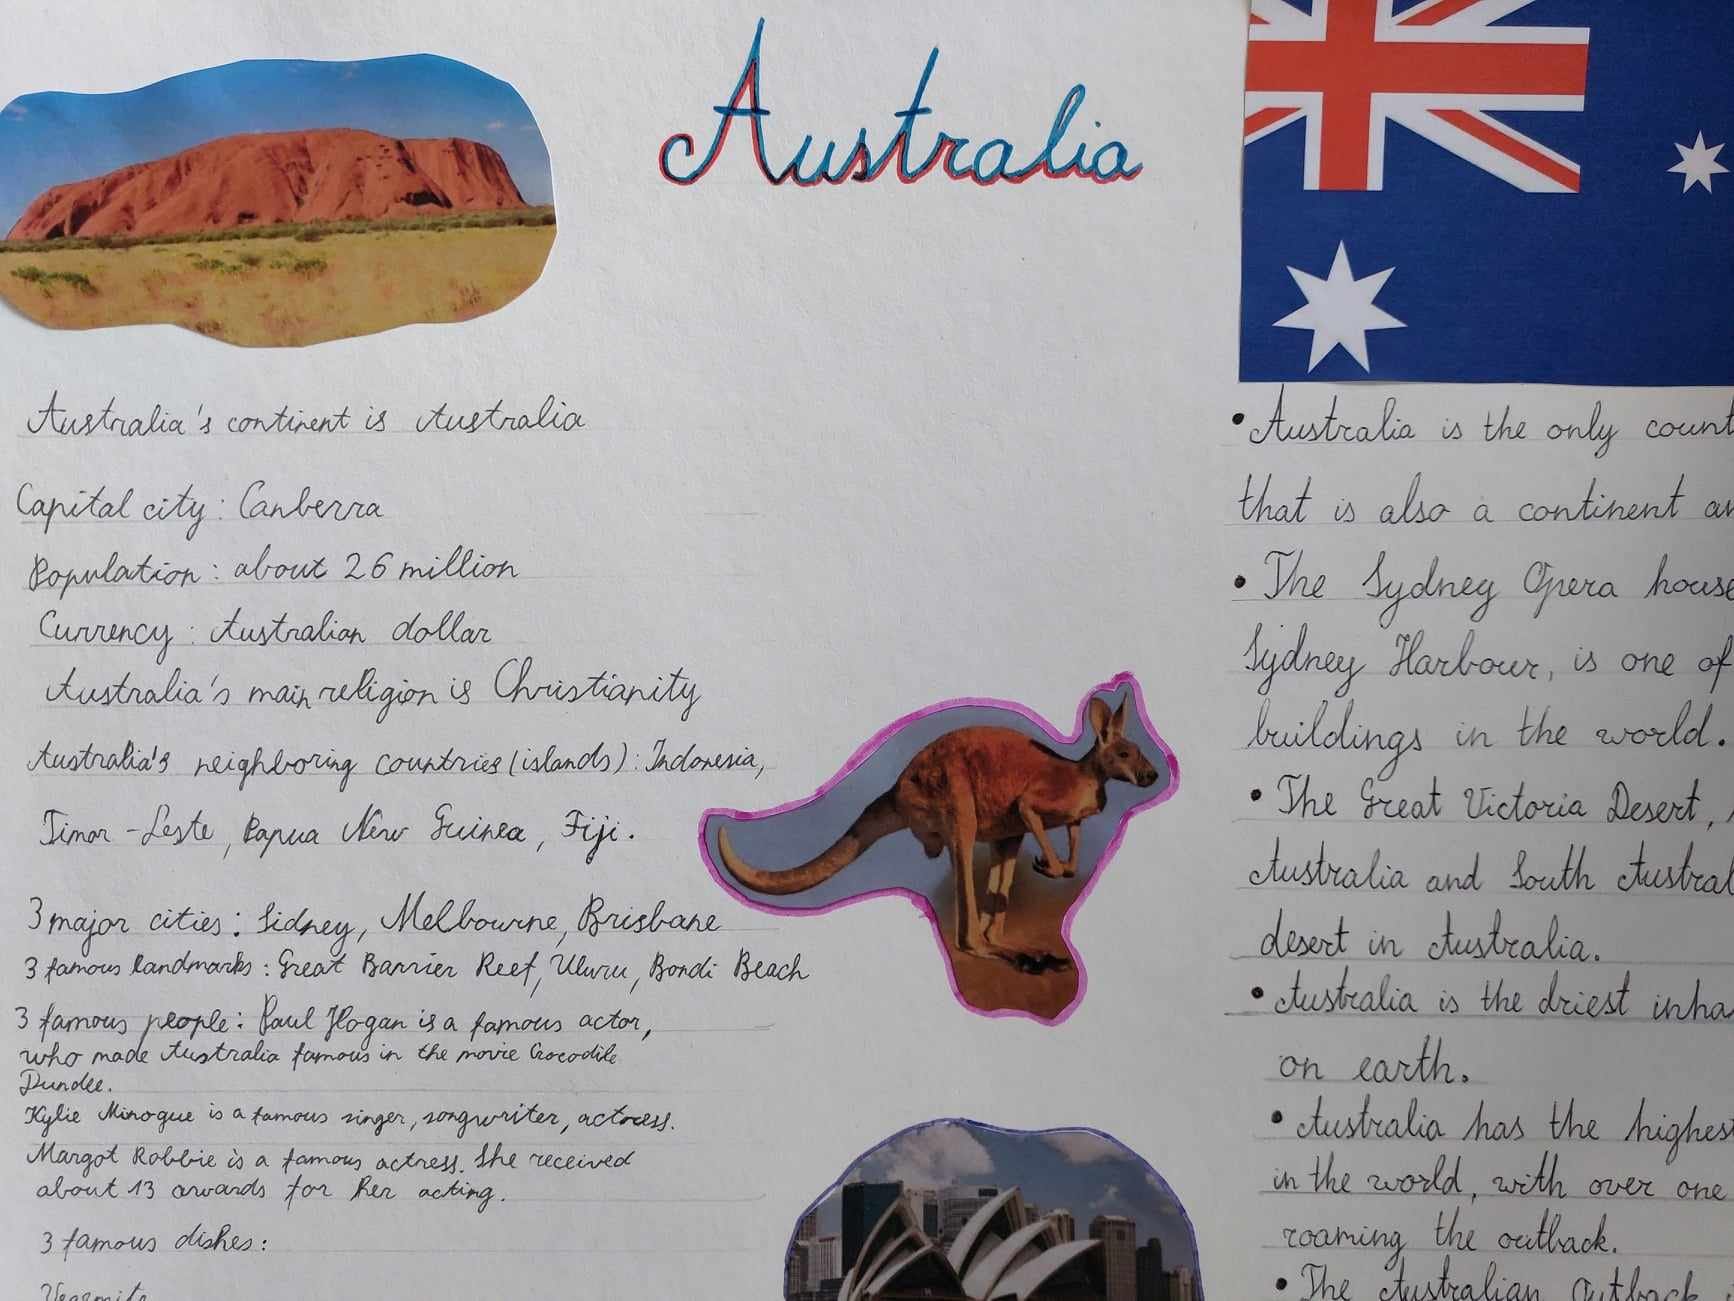 Australia
Australia's continent is Australia
Capital city: Canberra
Population: about 26 million
Currency: Australian dollar
Australia's main religion is Christianity
Australia's neighboring countries (islands): Indonesia,
Timor-Leste, Papua New Guinea, Fiji.
3 major cities: Sidney, Melbourne, Brisbane
3 famous landmarks: Great Barrier Reef, Uluru, Bondi Beach
3 famous people: Paul Hogan is a famous actor,
who made Australia famous in the movie Crocodile
Dundee.
Kylie Minogue is a famous singer, songwriter, actress.
Margot Robbie is a famous actress. She received
about 13 awards for her acting.
3 famous dishes:
• Australia is the only
that is also a continent
• The Sydney Opera house
Sydney Harbour, is one of
buildings in the world.
• The Great Victoria Desert,
Australia and South
desert in Australia.
• Australia is the driest
on earth.
• Australia has the highest
in the world, with over one
roaming the outback.
• The Australian Outback